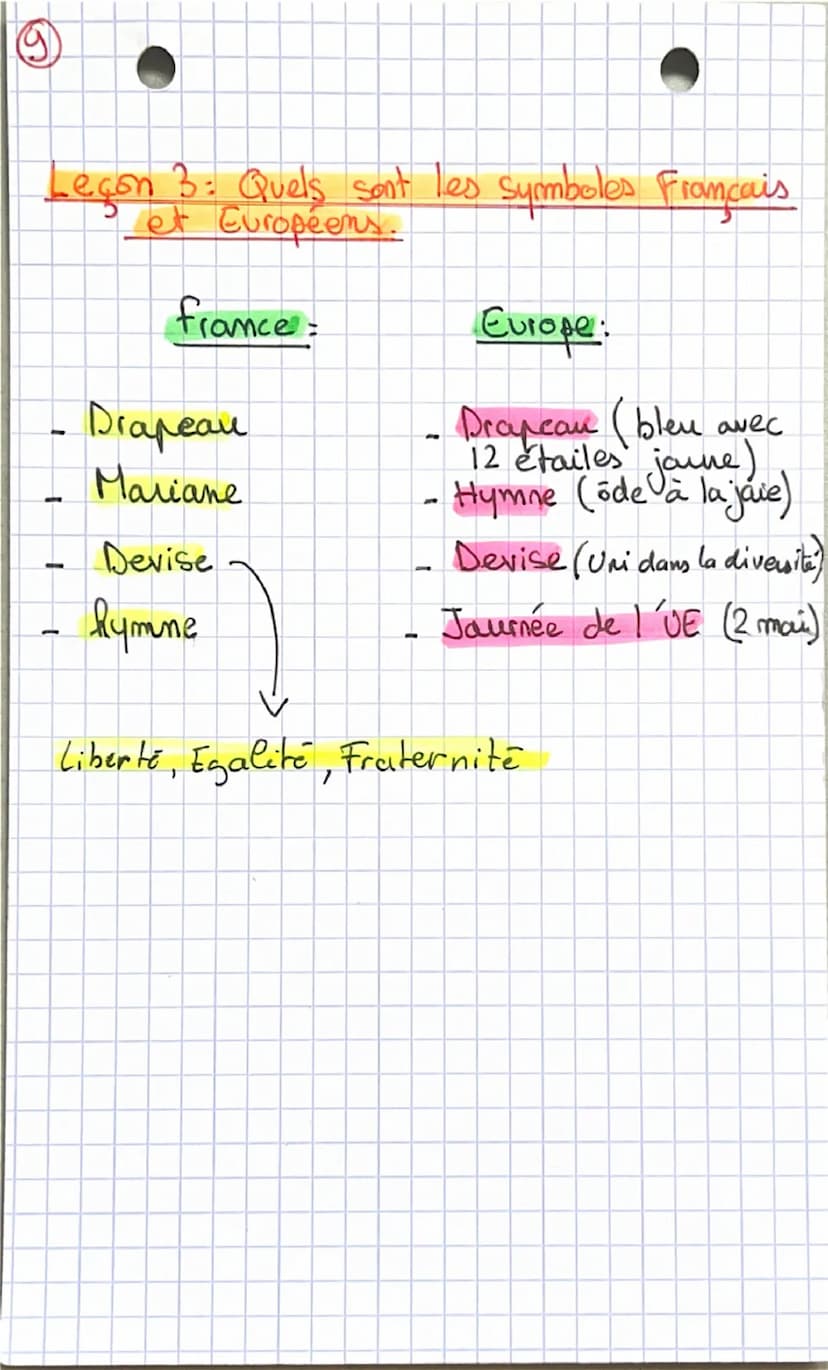 9
Leçon 3: Quels sont les symboles Français
et Européens.
france:
- Drapeau
- Mariane
- Devise
- hymne
Liberté, Egalité, Fraternité
Europe:
- Drapeau (bleu avec
12 étailes jaune)
- Hymne (ôde à la jaie)
- Devise (Uni dans la diversité)
- Journée de l'UE (2 mai)